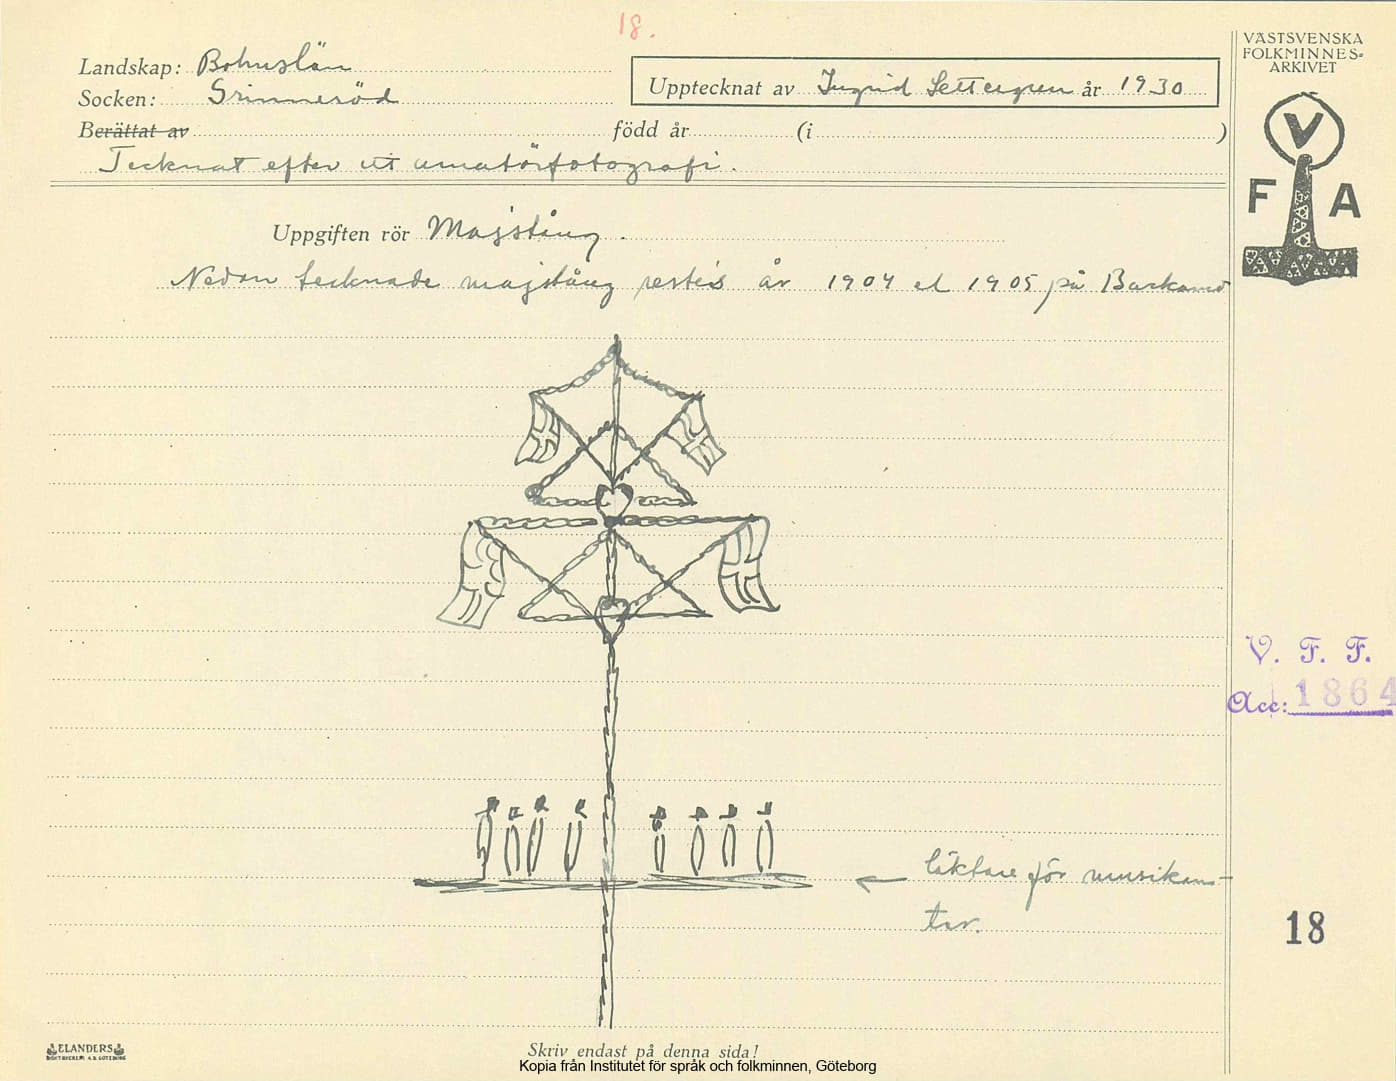 18.
Landskap: Bohuslän
Socken: Grinneröd
Upptecknat av Ingrid Settergren år 1930
Berättat av född år (i )
Tecknat efter ett amatörfotografi.
Uppgiften rör Majstång.
Nedan tecknade majstång restes år 1904 el 1905 på Backamo
läktare för musikan-
ter.
Skriv endast på denna sida!
ELANDERS
BOKTRYCKERI A.B. GÖTEBORG
Kopia från Institutet för språk och folkminnen, Göteborg
VÄSTSVENSKA
FOLKMINNES-
ARKIVET
V
F A
V. F. F.
Acc: 1864
18